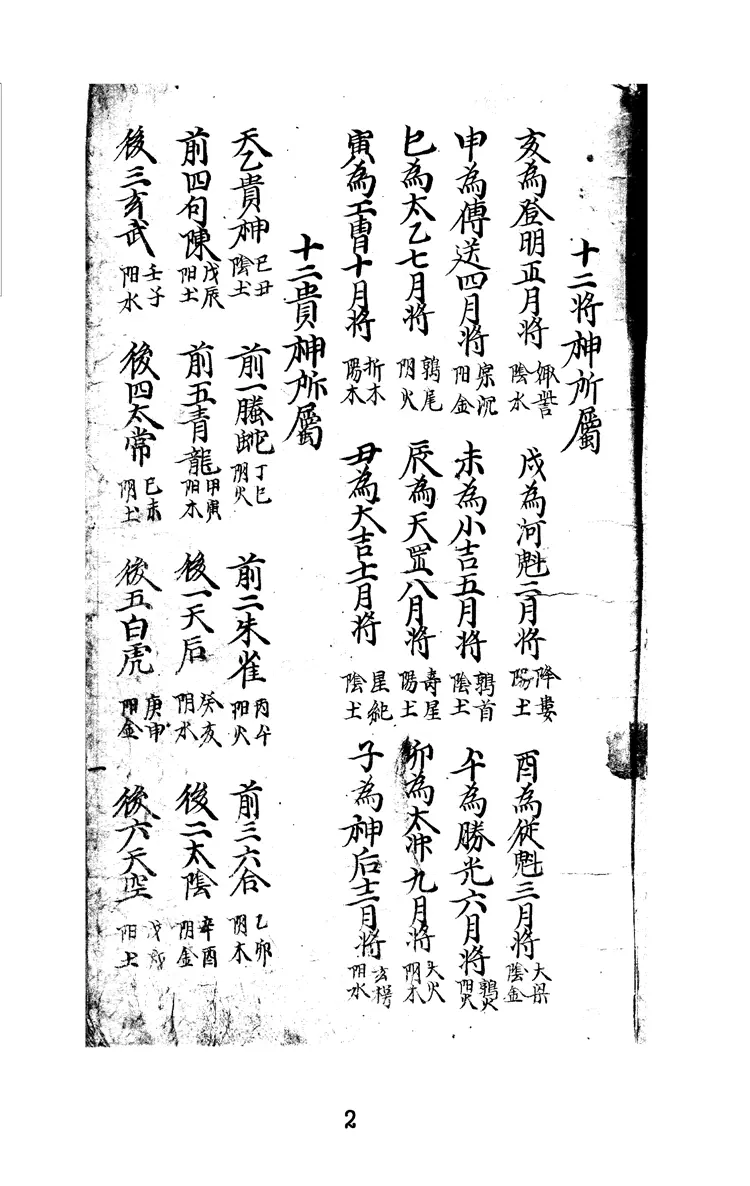 十二将神所屬
亥為登明正月将 娵訾陰水 戌為河魁二月将 降婁陽土 酉為從魁三月将 大梁陰金
申為傳送四月将 寀沉阳金 未為小吉五月将 鶉首陰土 午為勝光六月将 鶉火阳火
巳為太乙七月将 鶉尾阴火 辰為天罡八月将 壽星陽土 卯為太冲九月将 大火阴木
寅為工曹十月将 析木陽木 丑為大吉十一月将 星紀陰土 子為神后十二月将 玄枵阳水
十二貴神所屬
天乙貴神 巳丑陰土 前一螣蛇 丁巳阴火 前二朱雀 丙午阳火 前三六合 乙卯阴木
前四勾陳 戊辰阳土 前五青龍 甲寅阳木 後一天后 癸亥阴水 後二太陰 辛酉阴金
後三玄武 壬子阳水 後四太常 巳未阴土 後五白虎 庚申阳金 後六天空 戊戌阳土
一
2